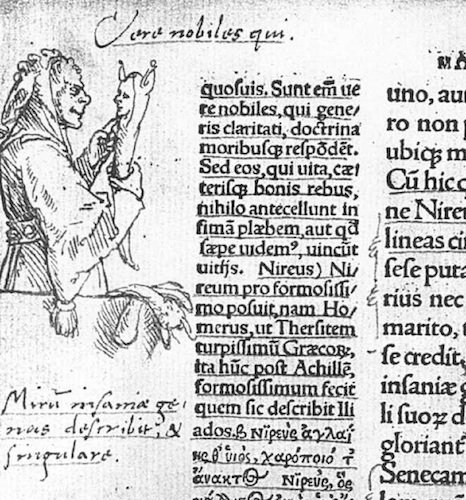 Vere nobiles qui.
quosuis. Sunt em̄ ue
re nobiles, qui gene
ris claritati, doctrina
moribusqꝫ respōdēt.
Sed eos, qui uita, cæ
terisqꝫ bonis rebus,
nihilo antecellunt in
simā plæbem, aut qđ
sæpe uidemꝰ, uincūt
uitijs. Nireus) Ni
reum pro formosissi
mo posuit, nam Ho
merus, ut Thersitem
turpissimū Græcoꝝ,
ita hūc post Achillē,
formosissimum fecit
quem sic describit Ili
ados.β Νῖρεὺς ἀγλαΐ
χαρόποιό τ
Νῖρεὺς, ὃς
Mirū insaniæ ge
nas describit, &
singulare.
uno, au
ro non p
ubiqꝫ m
Cū hic c
ne Nireu
lineas ci
sese puta
rius nec
marito,
se credit,
insaniæ g
li suoꝝ d
gloriant
Senecan